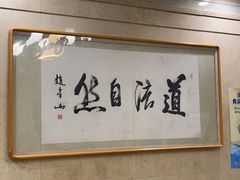 道法自然
趙本山